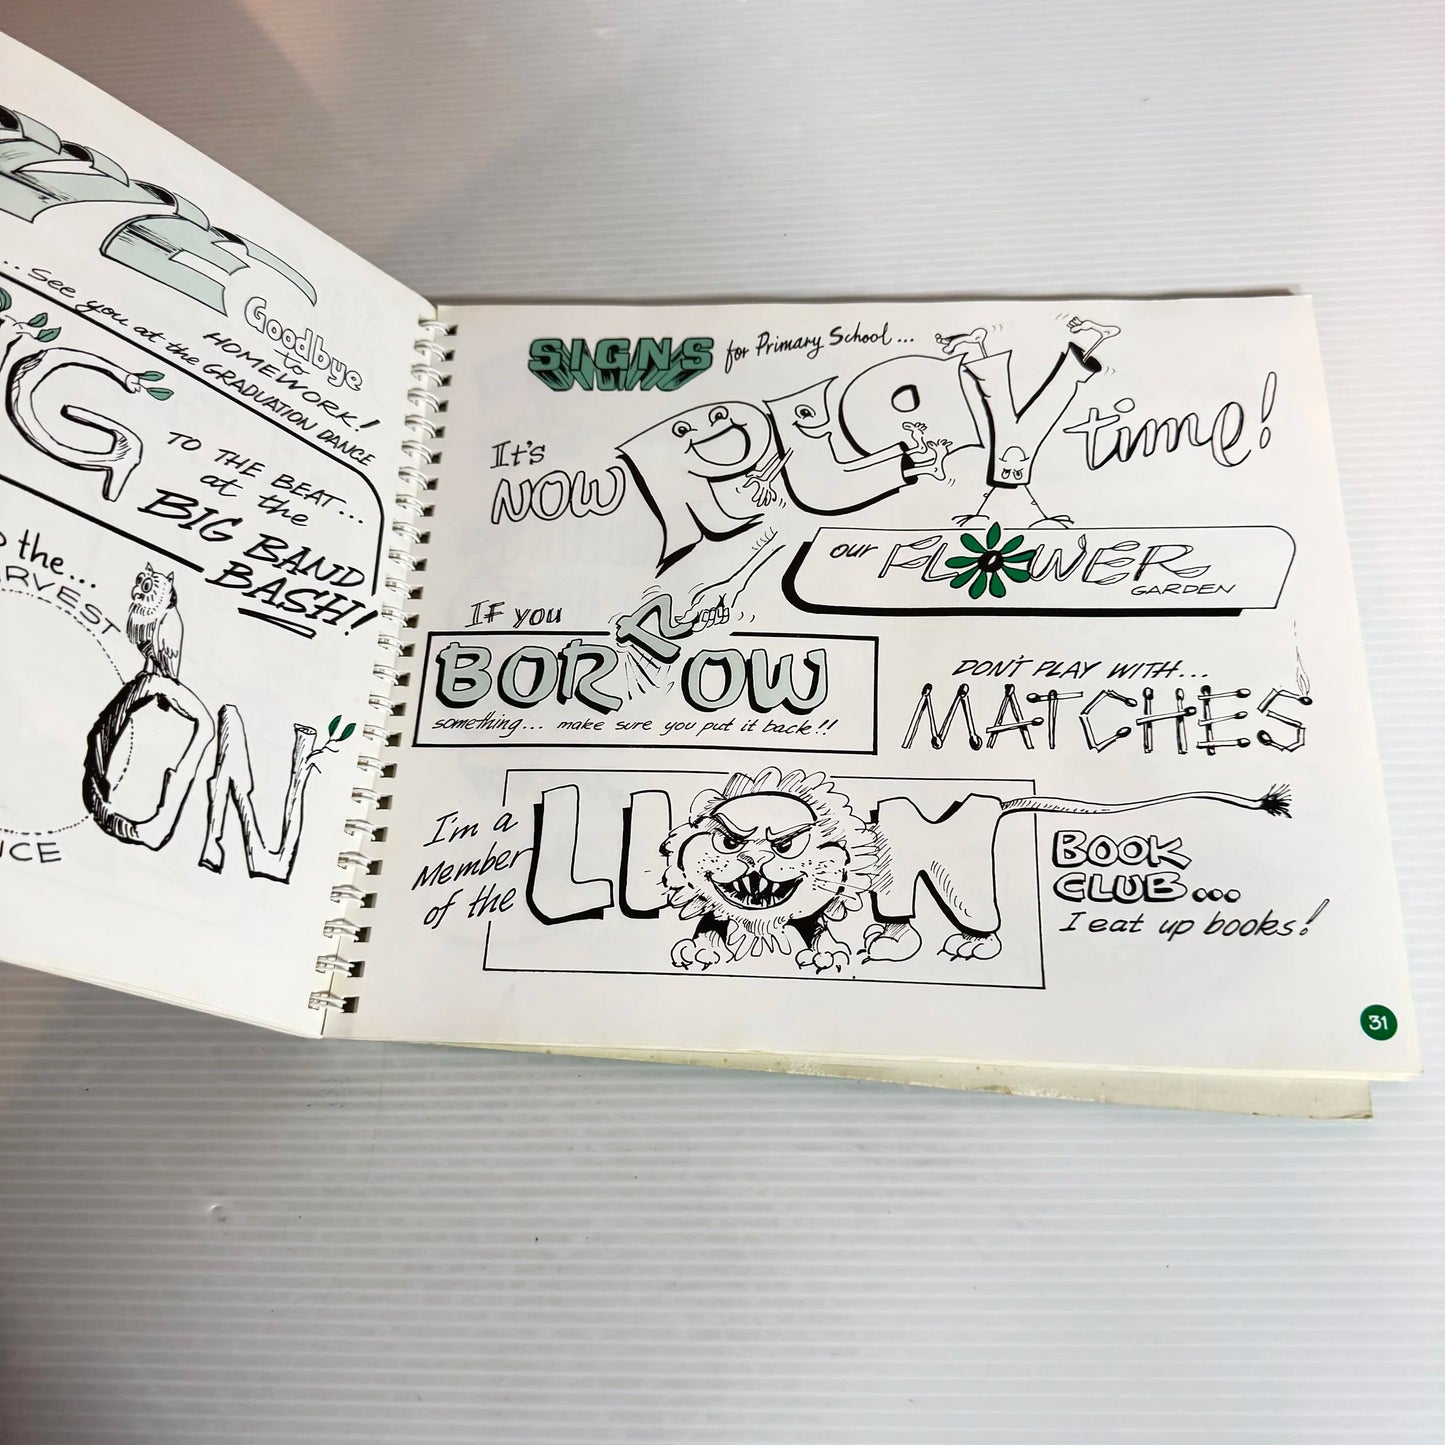 Goodbye
to
HOMEWORK!
... See you at the GRADUATION DANCE
TO THE BEAT...
at the
BIG BAND
BASH!
the...
ON
SIGNS for Primary School...
It's
NOW PLAY time!
our FLOWER
GARDEN
IF you
BORROW
something... make sure you put it back!!
DON'T PLAY WITH...
MATCHES
I'm a
Member
of the
LION
BOOK
CLUB...
I eat up books!
31